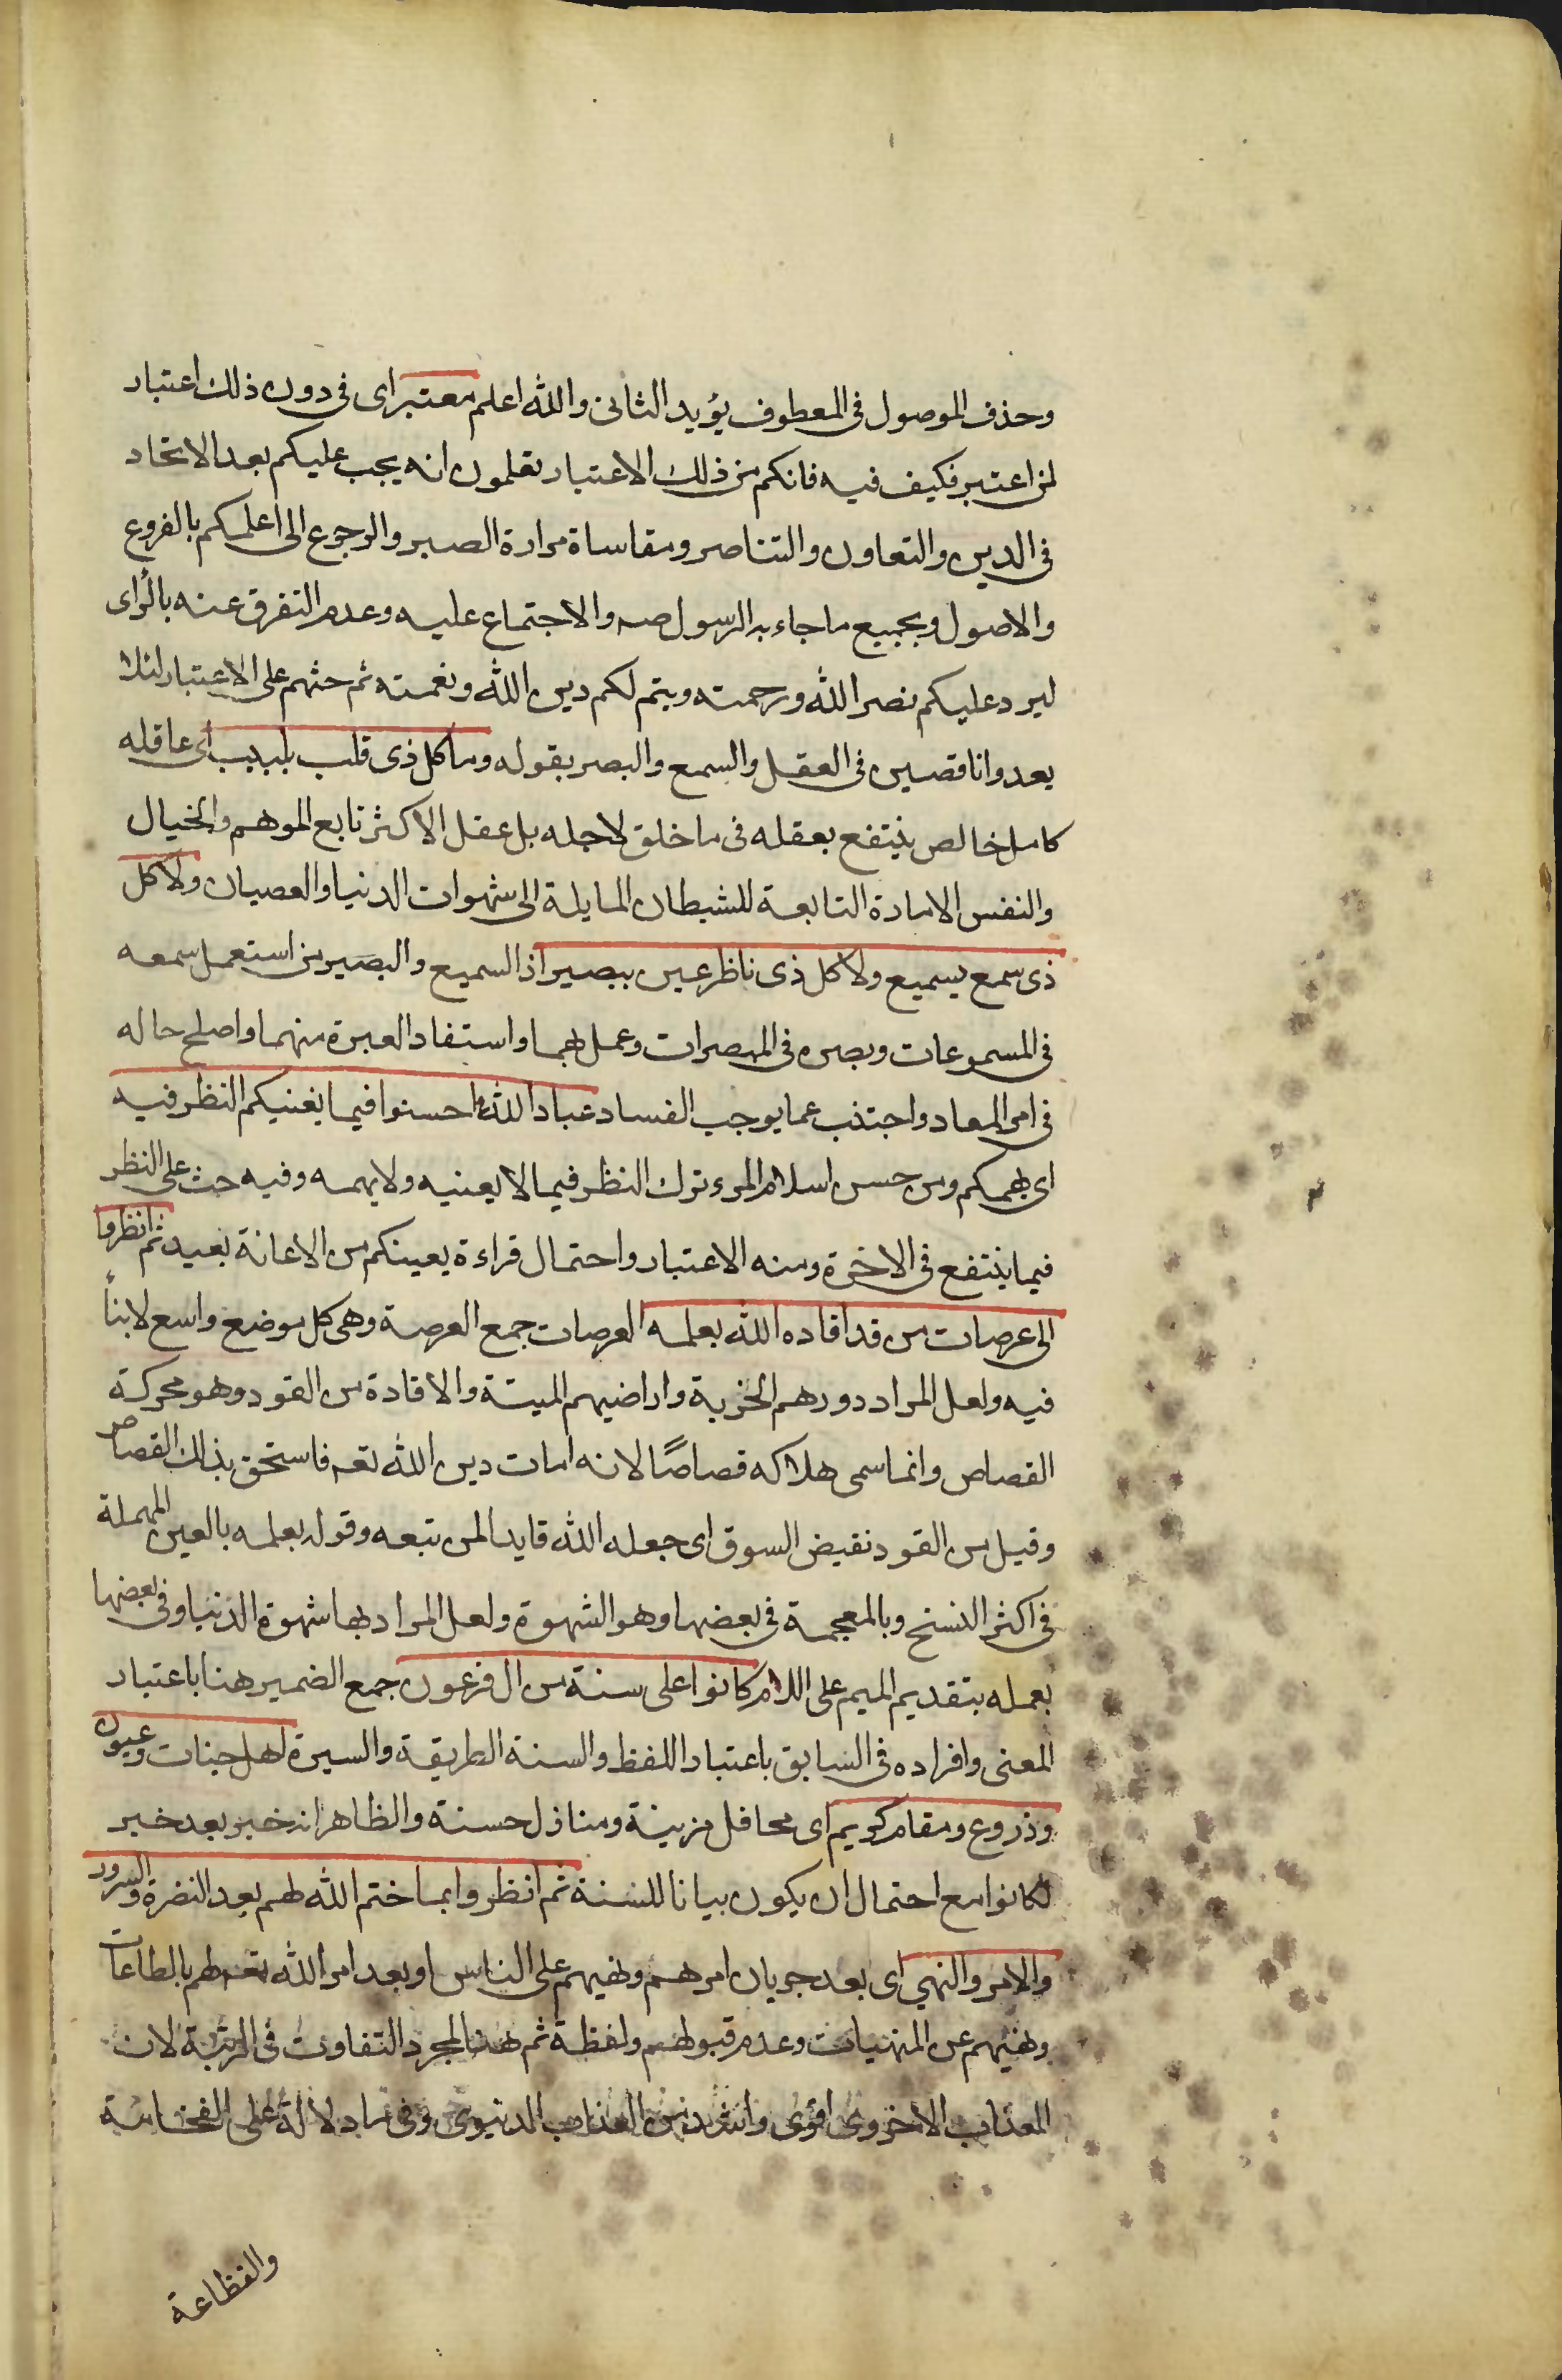 وحذف الموصول فى المعطوف يؤيد الثانى والله اعلم معتبر اى فى دون ذلك اعتبار
لمن اعتبر فكيف فيه فانكم من ذلك الاعتبار تعلمون انه يجب عليكم بعد الاتحاد
فى الدين والتعاون والتناصر ومقاساة مرارة الصبر والرجوع الى اعلمكم بالفروع
والاصول وبجميع ما جاء به الرسول صه والاجتماع عليه وعدم التفرق عنه بالراى
ليرد عليكم نصر الله ورحمته ويتم لكم دين الله ونعمته ثم حثهم على الاعتبار لئلا
يعدوا ناقصين فى العقل والسمع والبصر بقوله وما كل ذى قلب بلبيب اى عاقله
كامل خالص ينتفع بعقله فى ما خلق لاجله بل عقل الاكثر تابع الموهم والخيال
والنفس الامارة التابعة للشيطان المايلة الى شهوات الدنيا والعصيان ولا كل
ذى سمع بسميع ولا كل ذى ناظر عين ببصير اذ السميع والبصير من استعمل سمعه
فى المسموعات وبصره فى المبصرات وعمل بهما واستفاد العبرة منهما واصلح حاله
فى امر المعاد واجتنب عما يوجب الفساد عباد الله احسنوا فيما يعنيكم النظر فيه
اى يهمكم ومن حسن اسلام المرء ترك النظر فيما لا يعنيه ولا يهمه وفيه حث على النظر
فيما ينتفع فى الاخرة ومنه الاعتبار واحتمال قراءة يعينكم من الاعانة بعيد ثم انظروا
الى عرصات من قد اقاده الله بعلمه العرصات جمع العرصة وهى كل موضع واسع لا بناء
فيه ولعل المراد دورهم الخربة واراضيهم الميتة والاقادة من القود وهو محركة
القصاص وانما سمى هلاكه قصاصًا لانه امات دين الله تعه فاستحق بذلك القصاص
وقيل من القود نقيض السوق اى جعله الله قايدا لمن تبعه وقوله بعلمه بالعين المهملة
فى اكثر النسخ وبالمعجمة فى بعضها وهو الشهوة ولعل المراد بها شهوة الدنيا وفى بعضها
بعمله بتقديم الميم على اللام كانوا على سنة من ال فرعون جمع الضمير هنا باعتبار
المعنى وافراده فى السابق باعتبار اللفظ والسنة الطريقة والسيرة اهل جنات وعيون
وذروع ومقام كريم اى محافل مزينة ومنازل حسنة والظاهر انه خبر بعد خبر
لكانوا مع احتمال ان يكون بيانا للسنة ثم انظروا بما ختم الله لهم بعد النضرة والسرور
والامر والنهى اى بعد جريان امرهم ونهيهم على الناس او بعد امر الله تعه لهم بالطاعات
ونهيهم عن المنهيات وعدم قبولهم ولفظة ثم هنا لمجرد التفاوت فى الرتبة لان
العذاب الاخروى اقوى واشد من العذاب الدنيوى وفى ما دلالة على الفخامة
والفظاعة